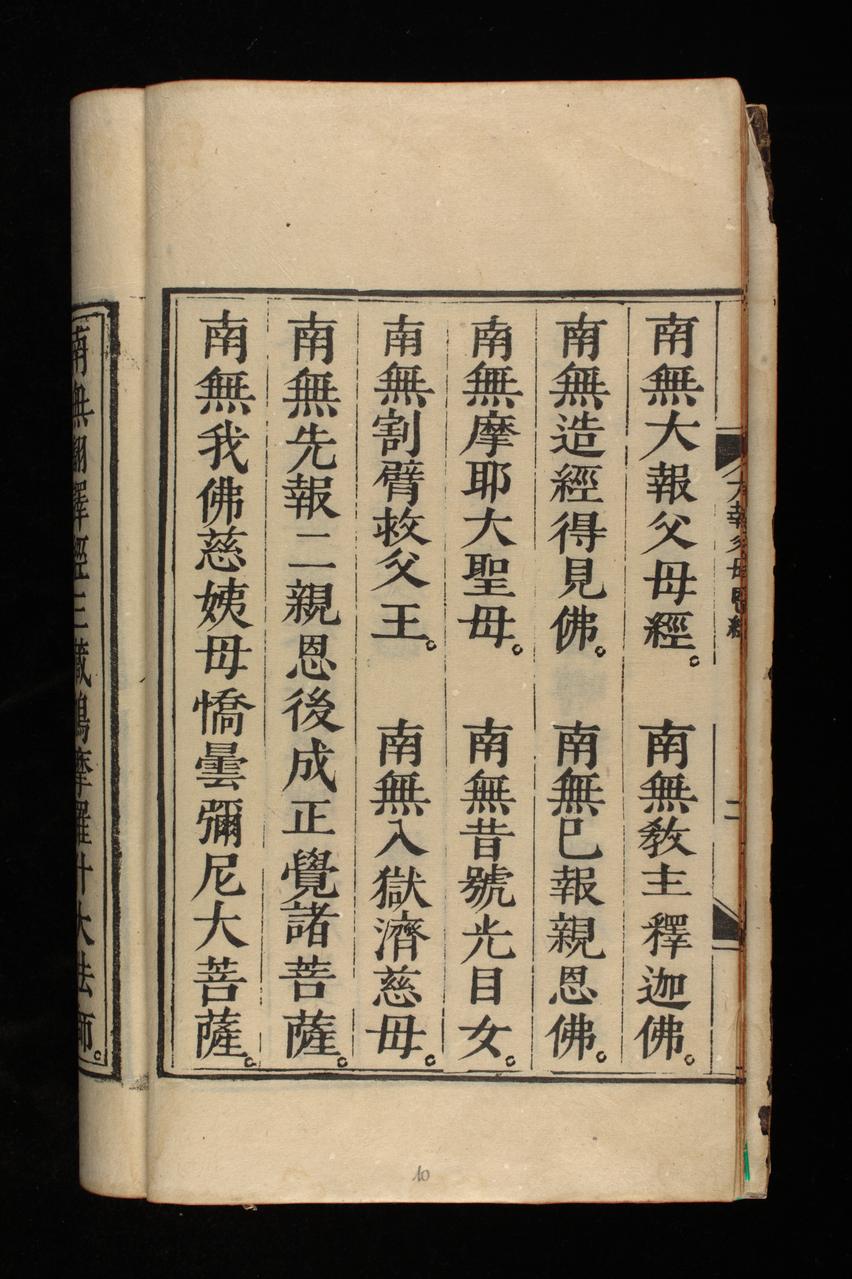 大報父母恩經
二
南無大報父母經。 南無教主釋迦佛。
南無造經得見佛。 南無已報親恩佛。
南無摩耶大聖母。 南無昔號光目女。
南無割臂救父王。 南無入獄濟慈母。
南無先報二親恩後成正覺諸菩薩。
南無我佛慈姨母憍曇彌尼大菩薩。
南無翻譯經三藏鳩摩羅什大法師。
10